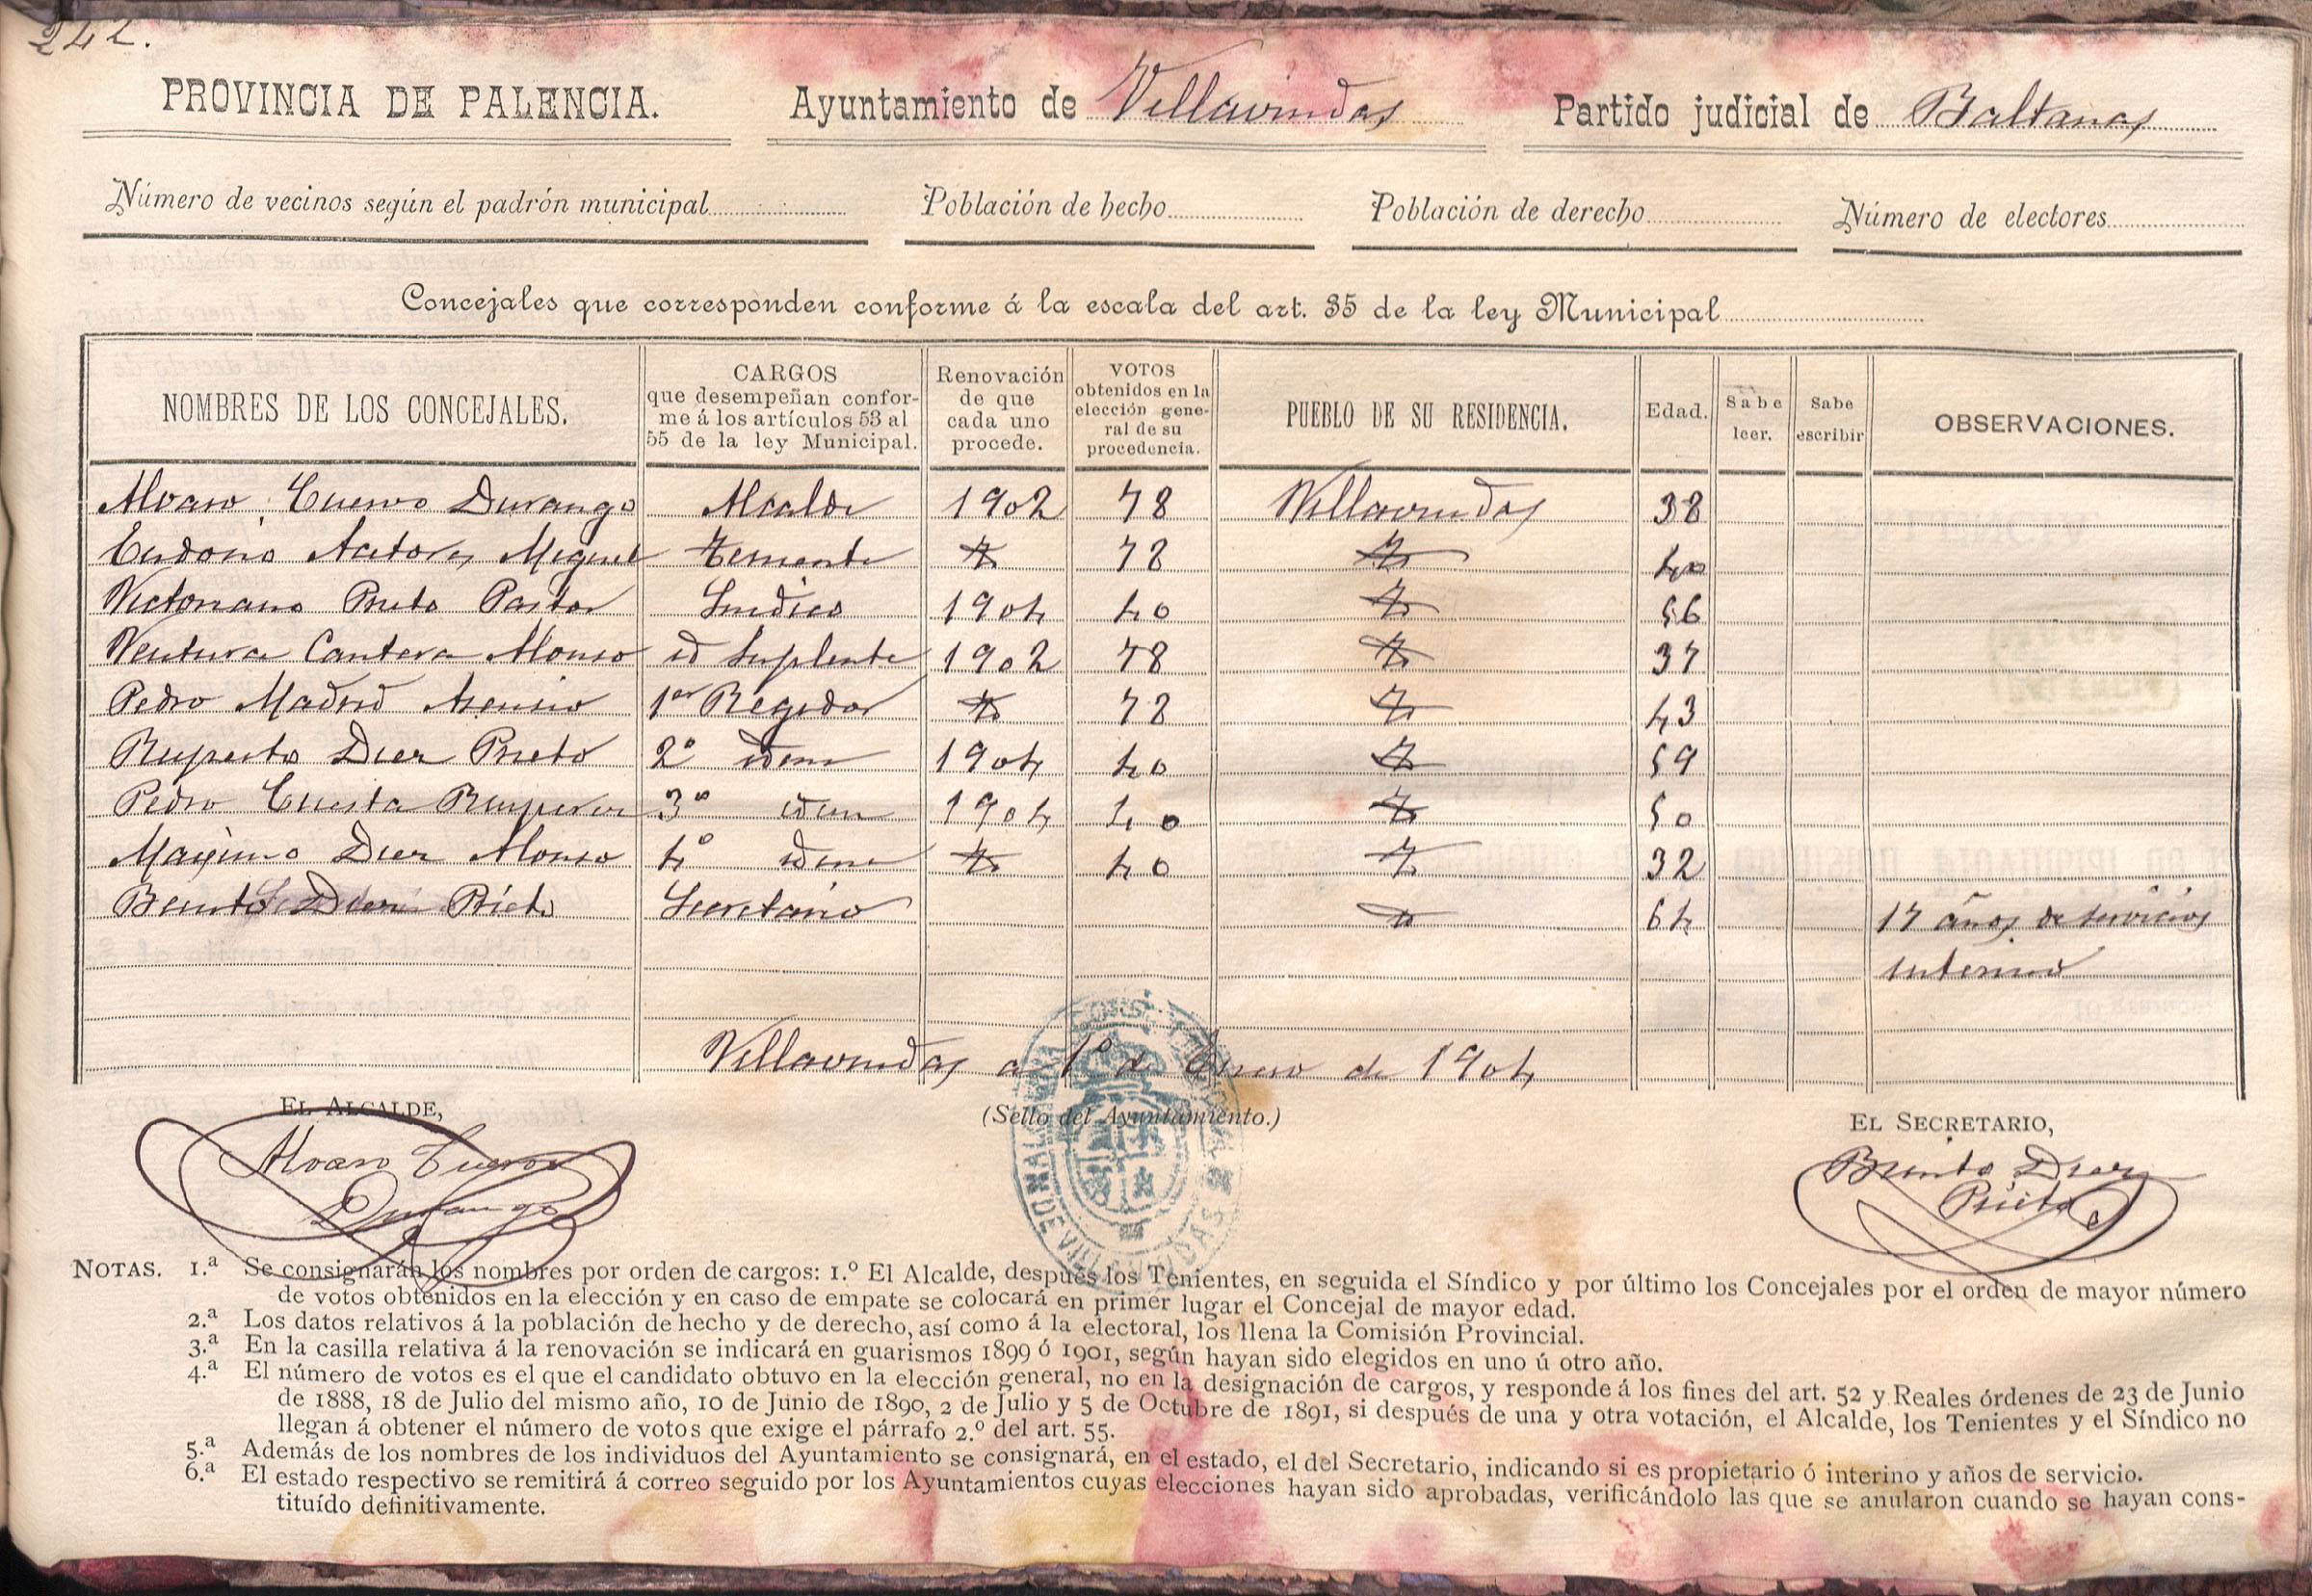 242.
PROVINCIA DE PALENCIA. Ayuntamiento de Villaviudas Partido judicial de Baltanas
Número de vecinos según el padrón municipal Población de hecho Población de derecho Número de electores
Concejales que corresponden conforme á la escala del art. 35 de la ley Municipal
NOMBRES DE LOS CONCEJALES.
CARGOS
que desempeñan confor-
me á los artículos 53 al
55 de la ley Municipal.
Renovación
de que
cada uno
procede.
VOTOS
obtenidos en la
elección gene-
ral de su
procedencia.
PUEBLO DE SU RESIDENCIA.
Edad.
Sabe
leer.
Sabe
escribir
OBSERVACIONES.
Alvaro Cuervo Durango Alcalde 1902 78 Villaviudas 38
Eudosio Miguel Teniente 78 40
Victoriano Prieto Pastor Sindico 1904 40 56
Ventura Cantera Alonso id Suplente 1902 78 37
Pedro Madrid Asensio 1er Regidor 78 43
Ruperto Diez Prieto 2º idem 1904 40 59
Pedro Cuesta 3º idem 1904 40 50
Maximo Diez Alonso 4º idem 40 32
Benito Diez Prieto Secretario 64 17 años de servicios
interino
Villaviudas a 1º de Enero de 1904
EL ALCALDE,
(Sello del Ayuntamiento.)
EL SECRETARIO,
Alvaro Cuervo
Durango
Benito Diez
Prieto
NOTAS. 1.ª Se consignarán los nombres por orden de cargos: 1.º El Alcalde, después los Tenientes, en seguida el Síndico y por último los Concejales por el orden de mayor número
de votos obtenidos en la elección y en caso de empate se colocará en primer lugar el Concejal de mayor edad.
2.ª Los datos relativos á la población de hecho y de derecho, así como á la electoral, los llena la Comisión Provincial.
3.ª En la casilla relativa á la renovación se indicará en guarismos 1899 ó 1901, según hayan sido elegidos en uno ú otro año.
4.ª El número de votos es el que el candidato obtuvo en la elección general, no en la designación de cargos, y responde á los fines del art. 52 y Reales órdenes de 23 de Junio
de 1888, 18 de Julio del mismo año, 10 de Junio de 1890, 2 de Julio y 5 de Octubre de 1891, si después de una y otra votación, el Alcalde, los Tenientes y el Síndico no
llegan á obtener el número de votos que exige el párrafo 2.º del art. 55.
5.ª Además de los nombres de los individuos del Ayuntamiento se consignará, en el estado, el del Secretario, indicando si es propietario ó interino y años de servicio.
6.ª El estado respectivo se remitirá á correo seguido por los Ayuntamientos cuyas elecciones hayan sido aprobadas, verificándolo las que se anularon cuando se hayan cons-
tituído definitivamente.